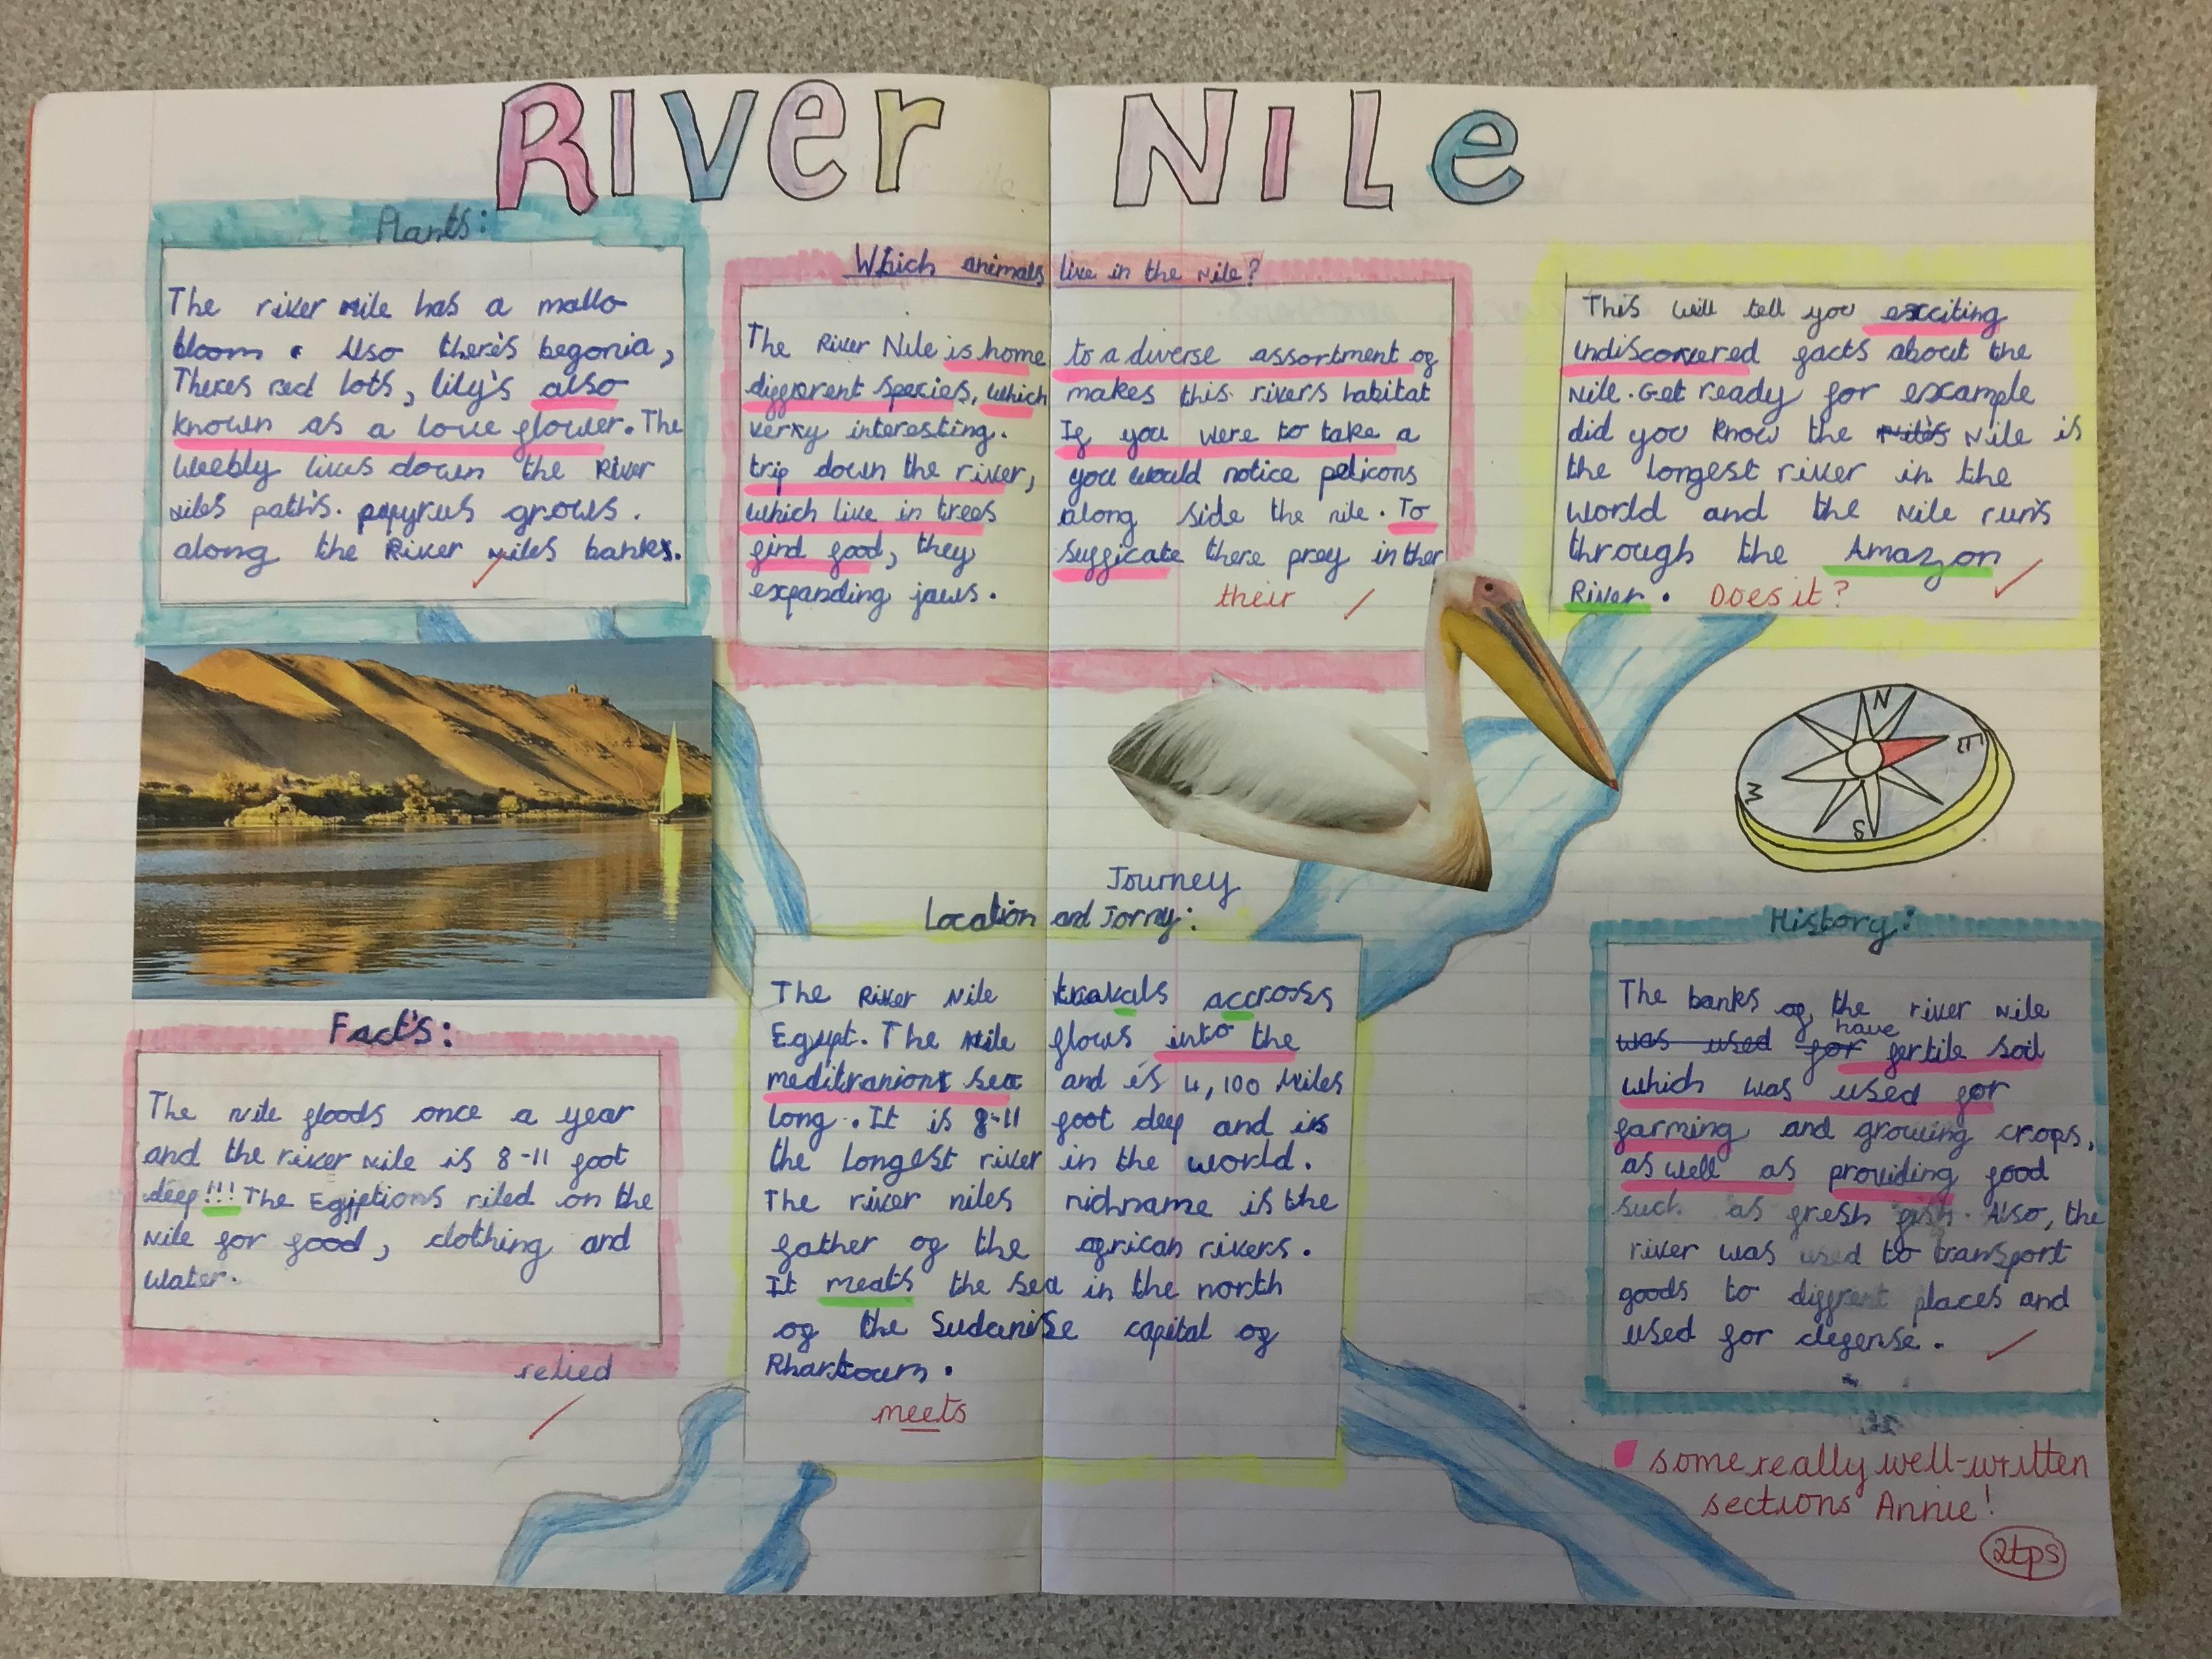 RIVer NILe
Plants:
The river Nile has a mallo
bloom. Also there's begonia,
Theres red lots, lily's also
known as a love flower. The
weebly lives down the River
niles path's. papyrus grows.
along the River Niles banks.
Which animals live in the Nile?
The River Nile is home to a diverse assortment of
different species, which makes this rivers habitat
verxy interesting. If you were to take a
trip down the river, you would notice pelicons
which live in trees along side the nile. To
find food, they sufficate there prey in ther
expanding jaws.
their
This will tell you exciting
undiscovered facts about the
Nile. Get ready for example
did you know the Nile's Nile is
the longest river in the
world and the Nile run's
through the Amazon
River. Does it?
N
E
S
W
Journey
Location and Jorny:
The River Nile travals accross
Egypt. The Nile flows into the
meditranion sea and is 4,100 Miles
long. It is 8-11 foot deep and is
the longest river in the world.
The river niles nickname is the
father of the african rivers.
It meats the sea in the north
of the Sudanise capital of
Rhartoum.
meets
Fact's:
The Nile floods once a year
and the river Nile is 8-11 foot
deep!!! The Egiptions riled on the
Nile for food, clothing and
water.
relied
History:
The banks of the river Nile
have
was used for fertile soil
which was used for
farming and growing crops,
as well as providing food
such as fresh fish. Also, the
river was used to transport
goods to diffrent places and
used for defense.
some really well-written
sections Annie!
2tps